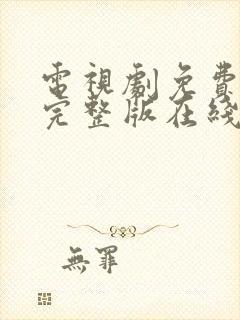 電視劇免費
完整版在綫
無罪